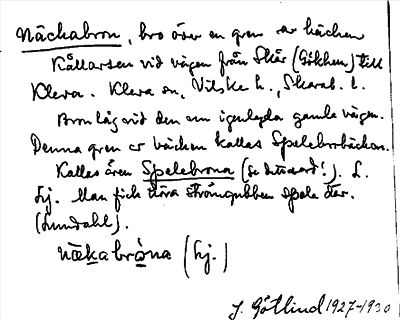 Näckabron, bro över en gren av bäcken
Kållarsen vid vägen från Skår (Gökhem) till
Kleva. Kleva sn, Vilske h., Skarab. l.
Bron låg vid den nu igenlagda gamla vägen.
Denna gren av bäcken kallas Spelebrobäcken.
Kallas även Spelebrona (se detta ord!). L.
Hj. Man fick höra strömgubben spela där.
(Lundahl).
näkabròna (Hj.)
J. Götlind 1927-1930